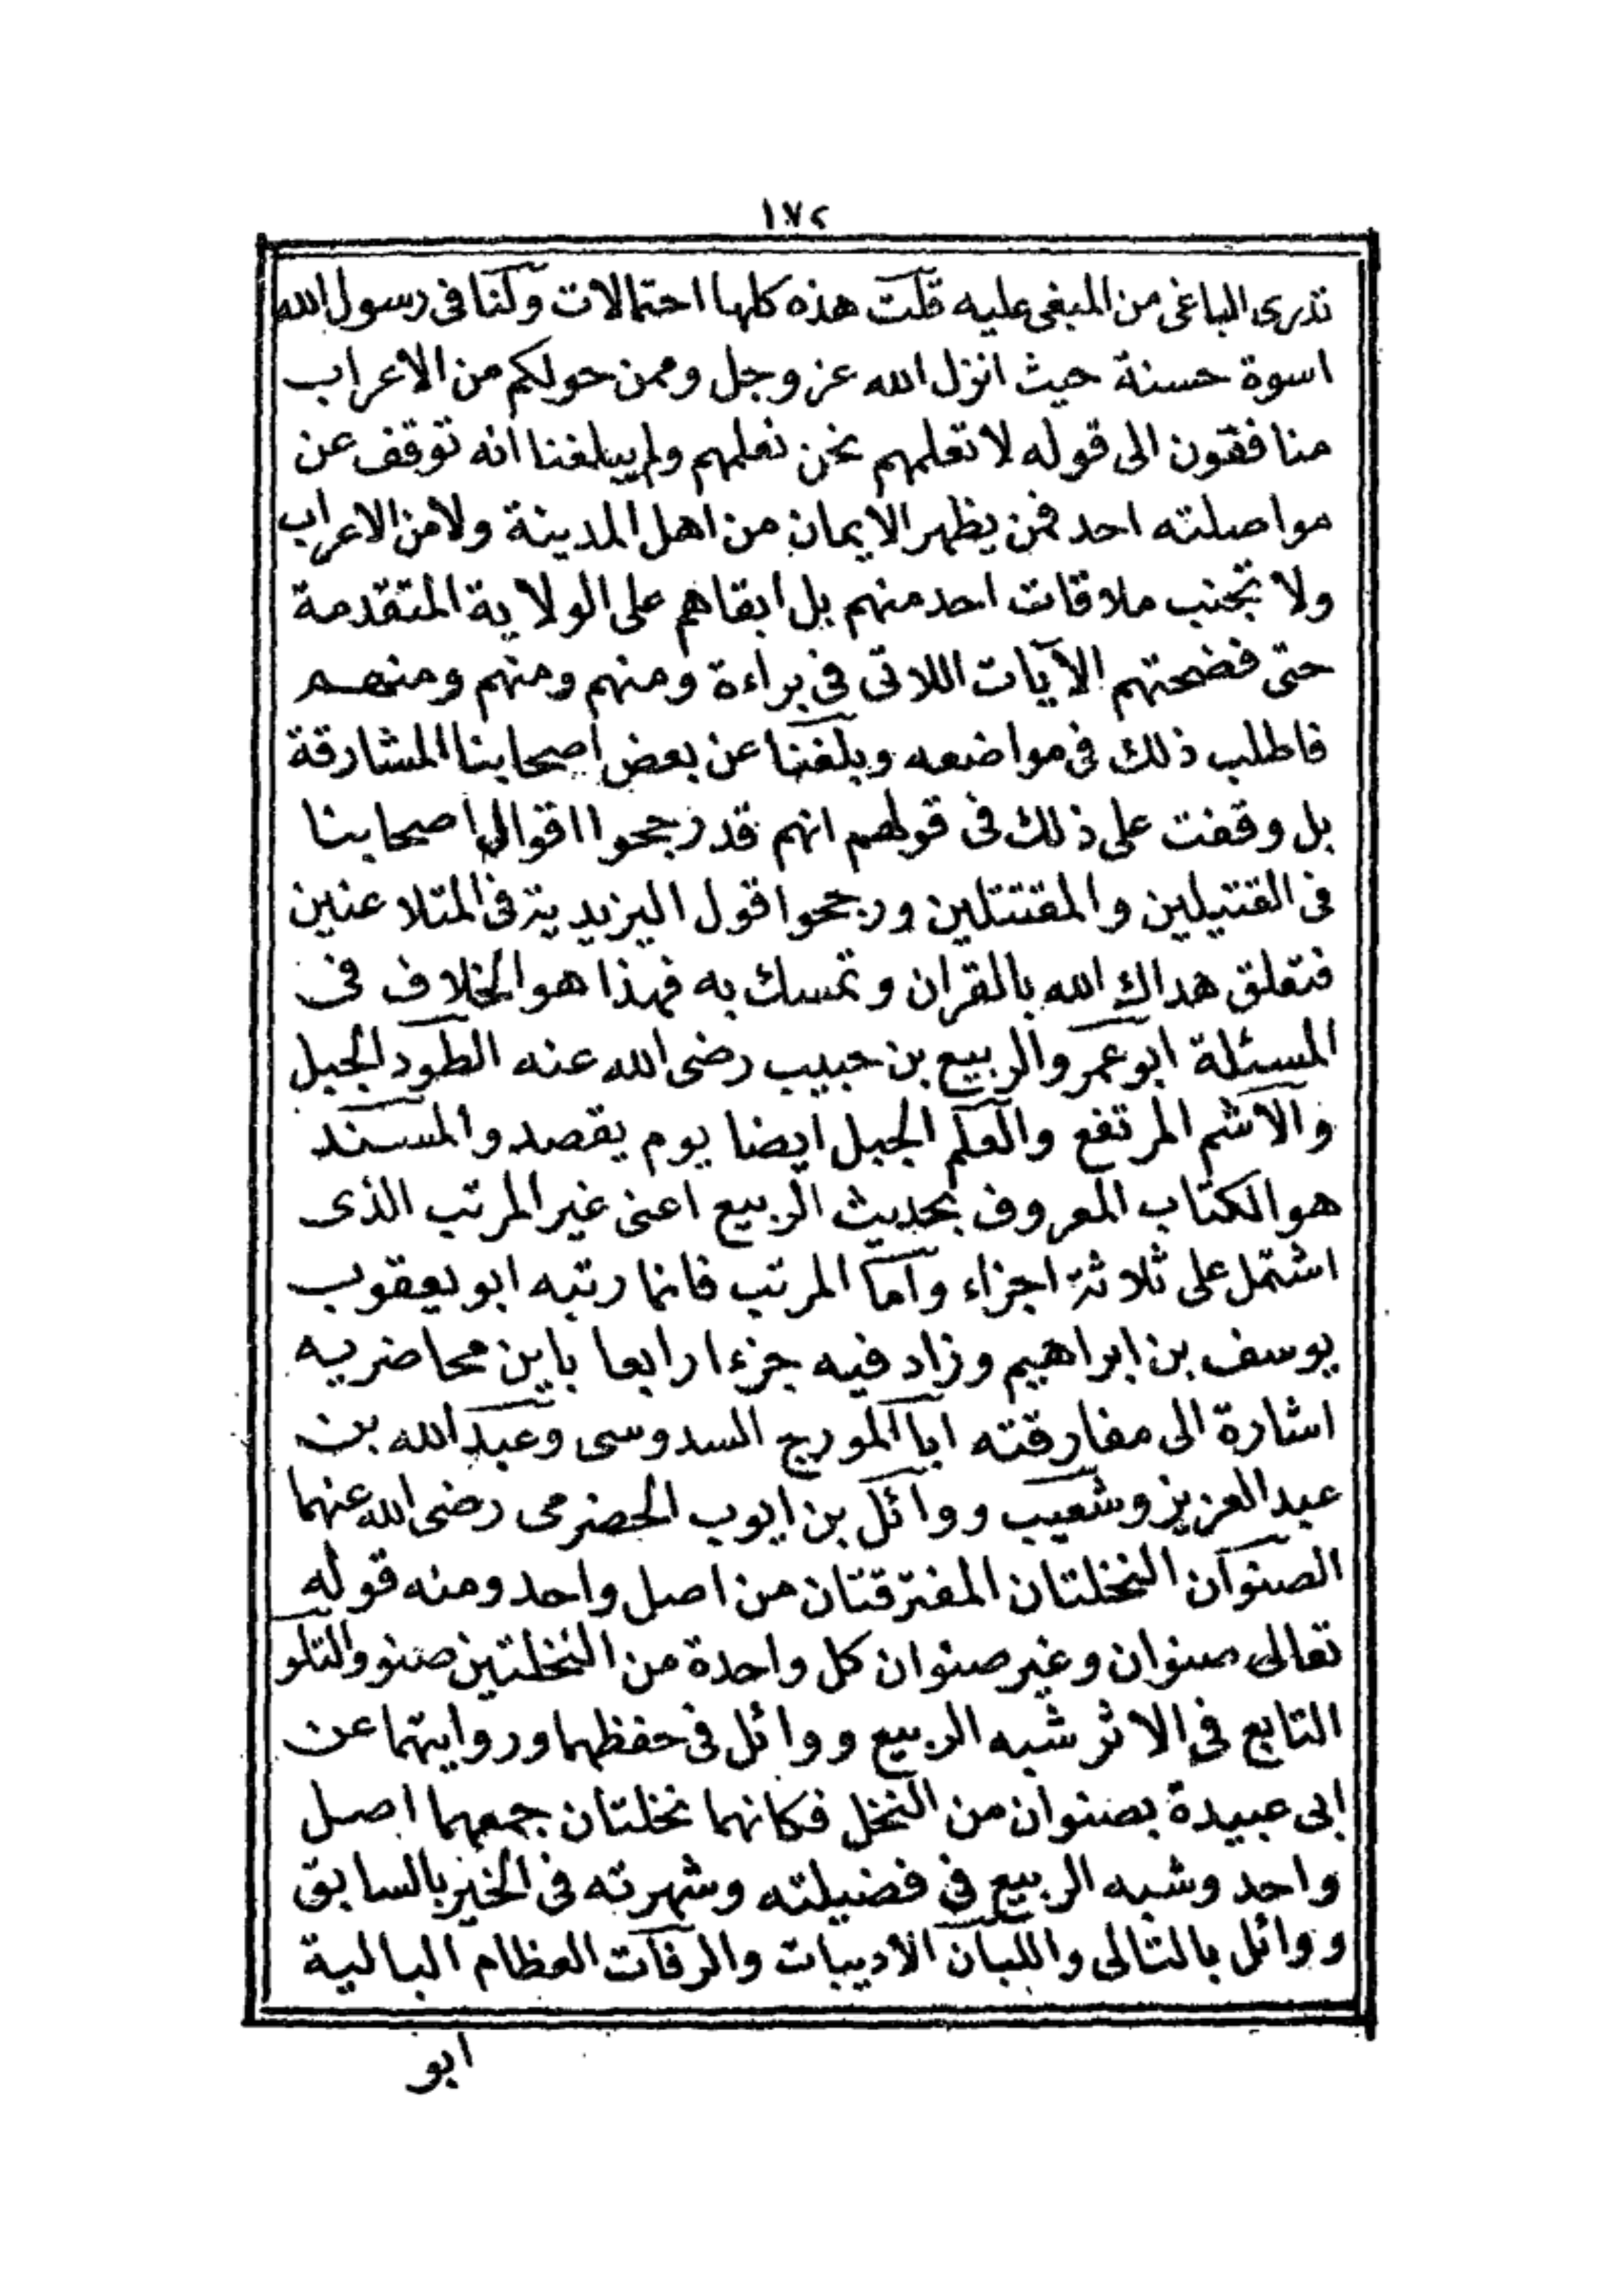 ١٧٢
تدرى الباغى من المبغى عليه قلت هذه كلها احتمالات ولنا فى رسول الله
اسوة حسنة حيث انزل الله عز وجل وممن حولكم من الاعراب
منافقون الى قوله لا تعلمهم نحن نعلمهم ولم يبلغنا انه توقف عن
مواصلته احد فمن يظهر الايمان من اهل المدينة ولا من الاعراب
ولا تجنب ملاقات احد منهم بل ابقاهم على الولاية المتقدمة
حتى فضحتهم الآيات اللاتى فى براءة ومنهم ومنهم ومنهم
فاطلب ذلك فى مواضعه وبلغنا عن بعض اصحابنا المشارقة
بل وقفت على ذلك فى قولهم انهم قد رجحوا اقوالى اصحابنا
فى القتيلين والمقتتلين ورجحوا قول اليزيدية فى المتلاعنين
فتعلق هداك الله بالقران وتمسك به فهذا هو الخلاف فى
المسئلة ابو عمرو الربيع بن حبيب رضى الله عنه الطود الجبل
والاشم المرتفع والعلم الجبل ايضا يوم يقصد والمسند
هو الكتاب المعروف بحديث الربيع اعنى غير المرتب الذى
اشتمل على ثلاثة اجزاء واما المرتب فانما رتبه ابو يعقوب
يوسف بن ابراهيم وزاد فيه جزءا رابعا باين محاضريه
اشارة الى مفارقته ابا المورج السدوسى وعبد الله بن
عبد العزيز وشعيب ووائل بن ايوب الحضرمى رضى الله عنهما
الصنوان النخلتان المفترقتان من اصل واحد ومنه قوله
تعالى صنوان وغير صنوان كل واحدة من النخلتين صنو والتلو
التابع فى الاثر شبه الربيع ووائل فى حفظهما وروايتهما عن
ابى عبيدة بصنوان من النخل فكانهما نخلتان جمعهما اصل
واحد وشبه الربيع فى فضيلته وشهرته فى الخير بالسابق
ووائل بالتالى واللبان الاديبات والرفات العظام البالية
ابو